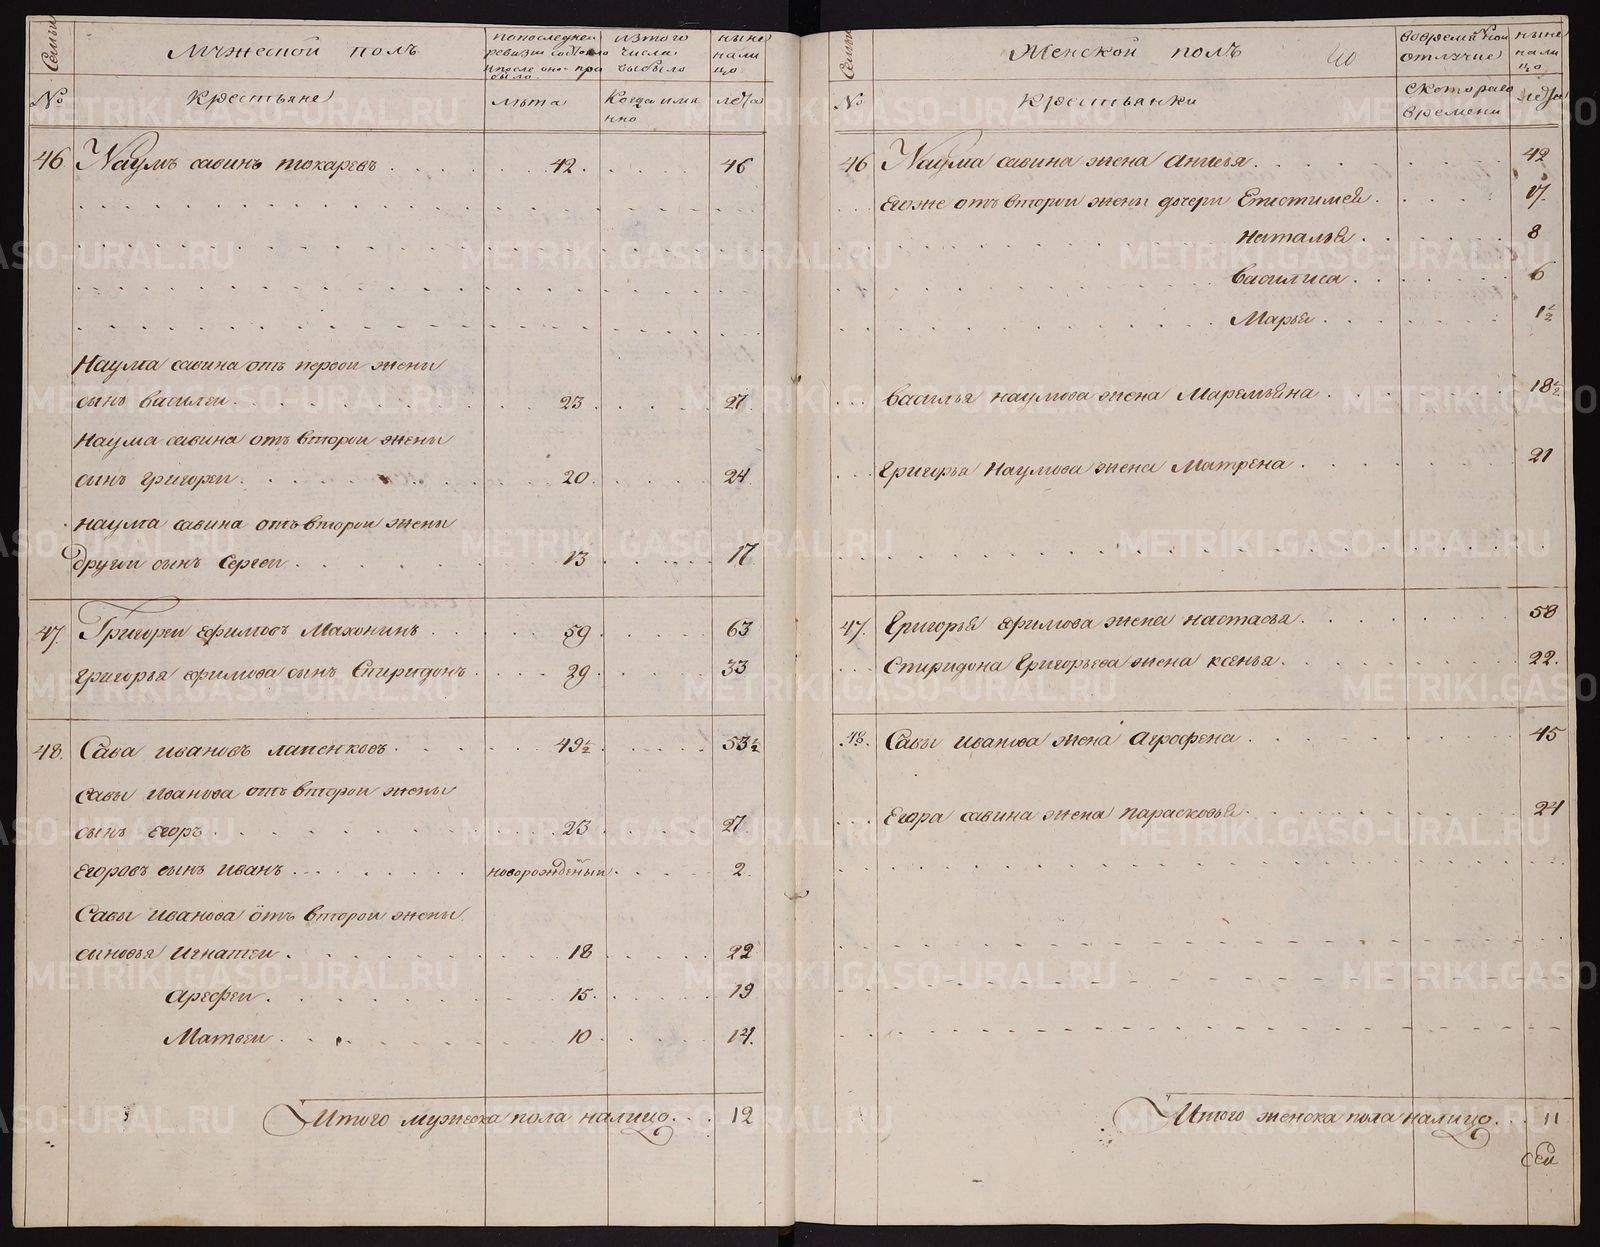 Семьи
Мужеской полъ
по последней ревизии состояло и после оной прибыло
изъ того числа выбыло
ныне на лицо
№
Крестьяне
лѣта
Когда именно
лета
46 Наумъ савинъ токаревъ 42 46
Наума савина отъ первои жены
сынъ василеи 23 27
Наума савина отъ второи жены
сынъ григореи 20 24
наума савина отъ второи жены
другои сынъ Сергеи 13 17
47 Григореи ефимовъ Махонинъ 59 63
григорья ефимова сынъ Спиридонъ 29 33
48 Сава ивановъ лапенковъ 49½ 53½
Савы иванова отъ второи жены
сынъ егоръ 23 27
егоровъ сынъ иванъ новорожденыи 2
Савы иванова отъ второи жены
сыновья игнатеи 18 22
арефеи 15 19
Матвеи 10 14
Итого мужеска пола на лицо 12
Семьи
Женской полъ 40
во временной отлучке
ныне на лицо
№
Крестьянки
с котораго времени
лета
46 Наума савина жена анисья 42
его же отъ второи жены дочери Епистимея 17
наталья 8
василиса 6
Марья 1½
василья наумова жена Маремьяна 18½
григорья Наумова жена Матрена 21
47 григорья ефимова жена настасья 58
Спиридона григорьева жена ксенья 22
48 Савы иванова жена аграфена 45
Егора савина жена парасковья 24
Итого женска пола на лицо 11
METRIKI.GASO-URAL.RU